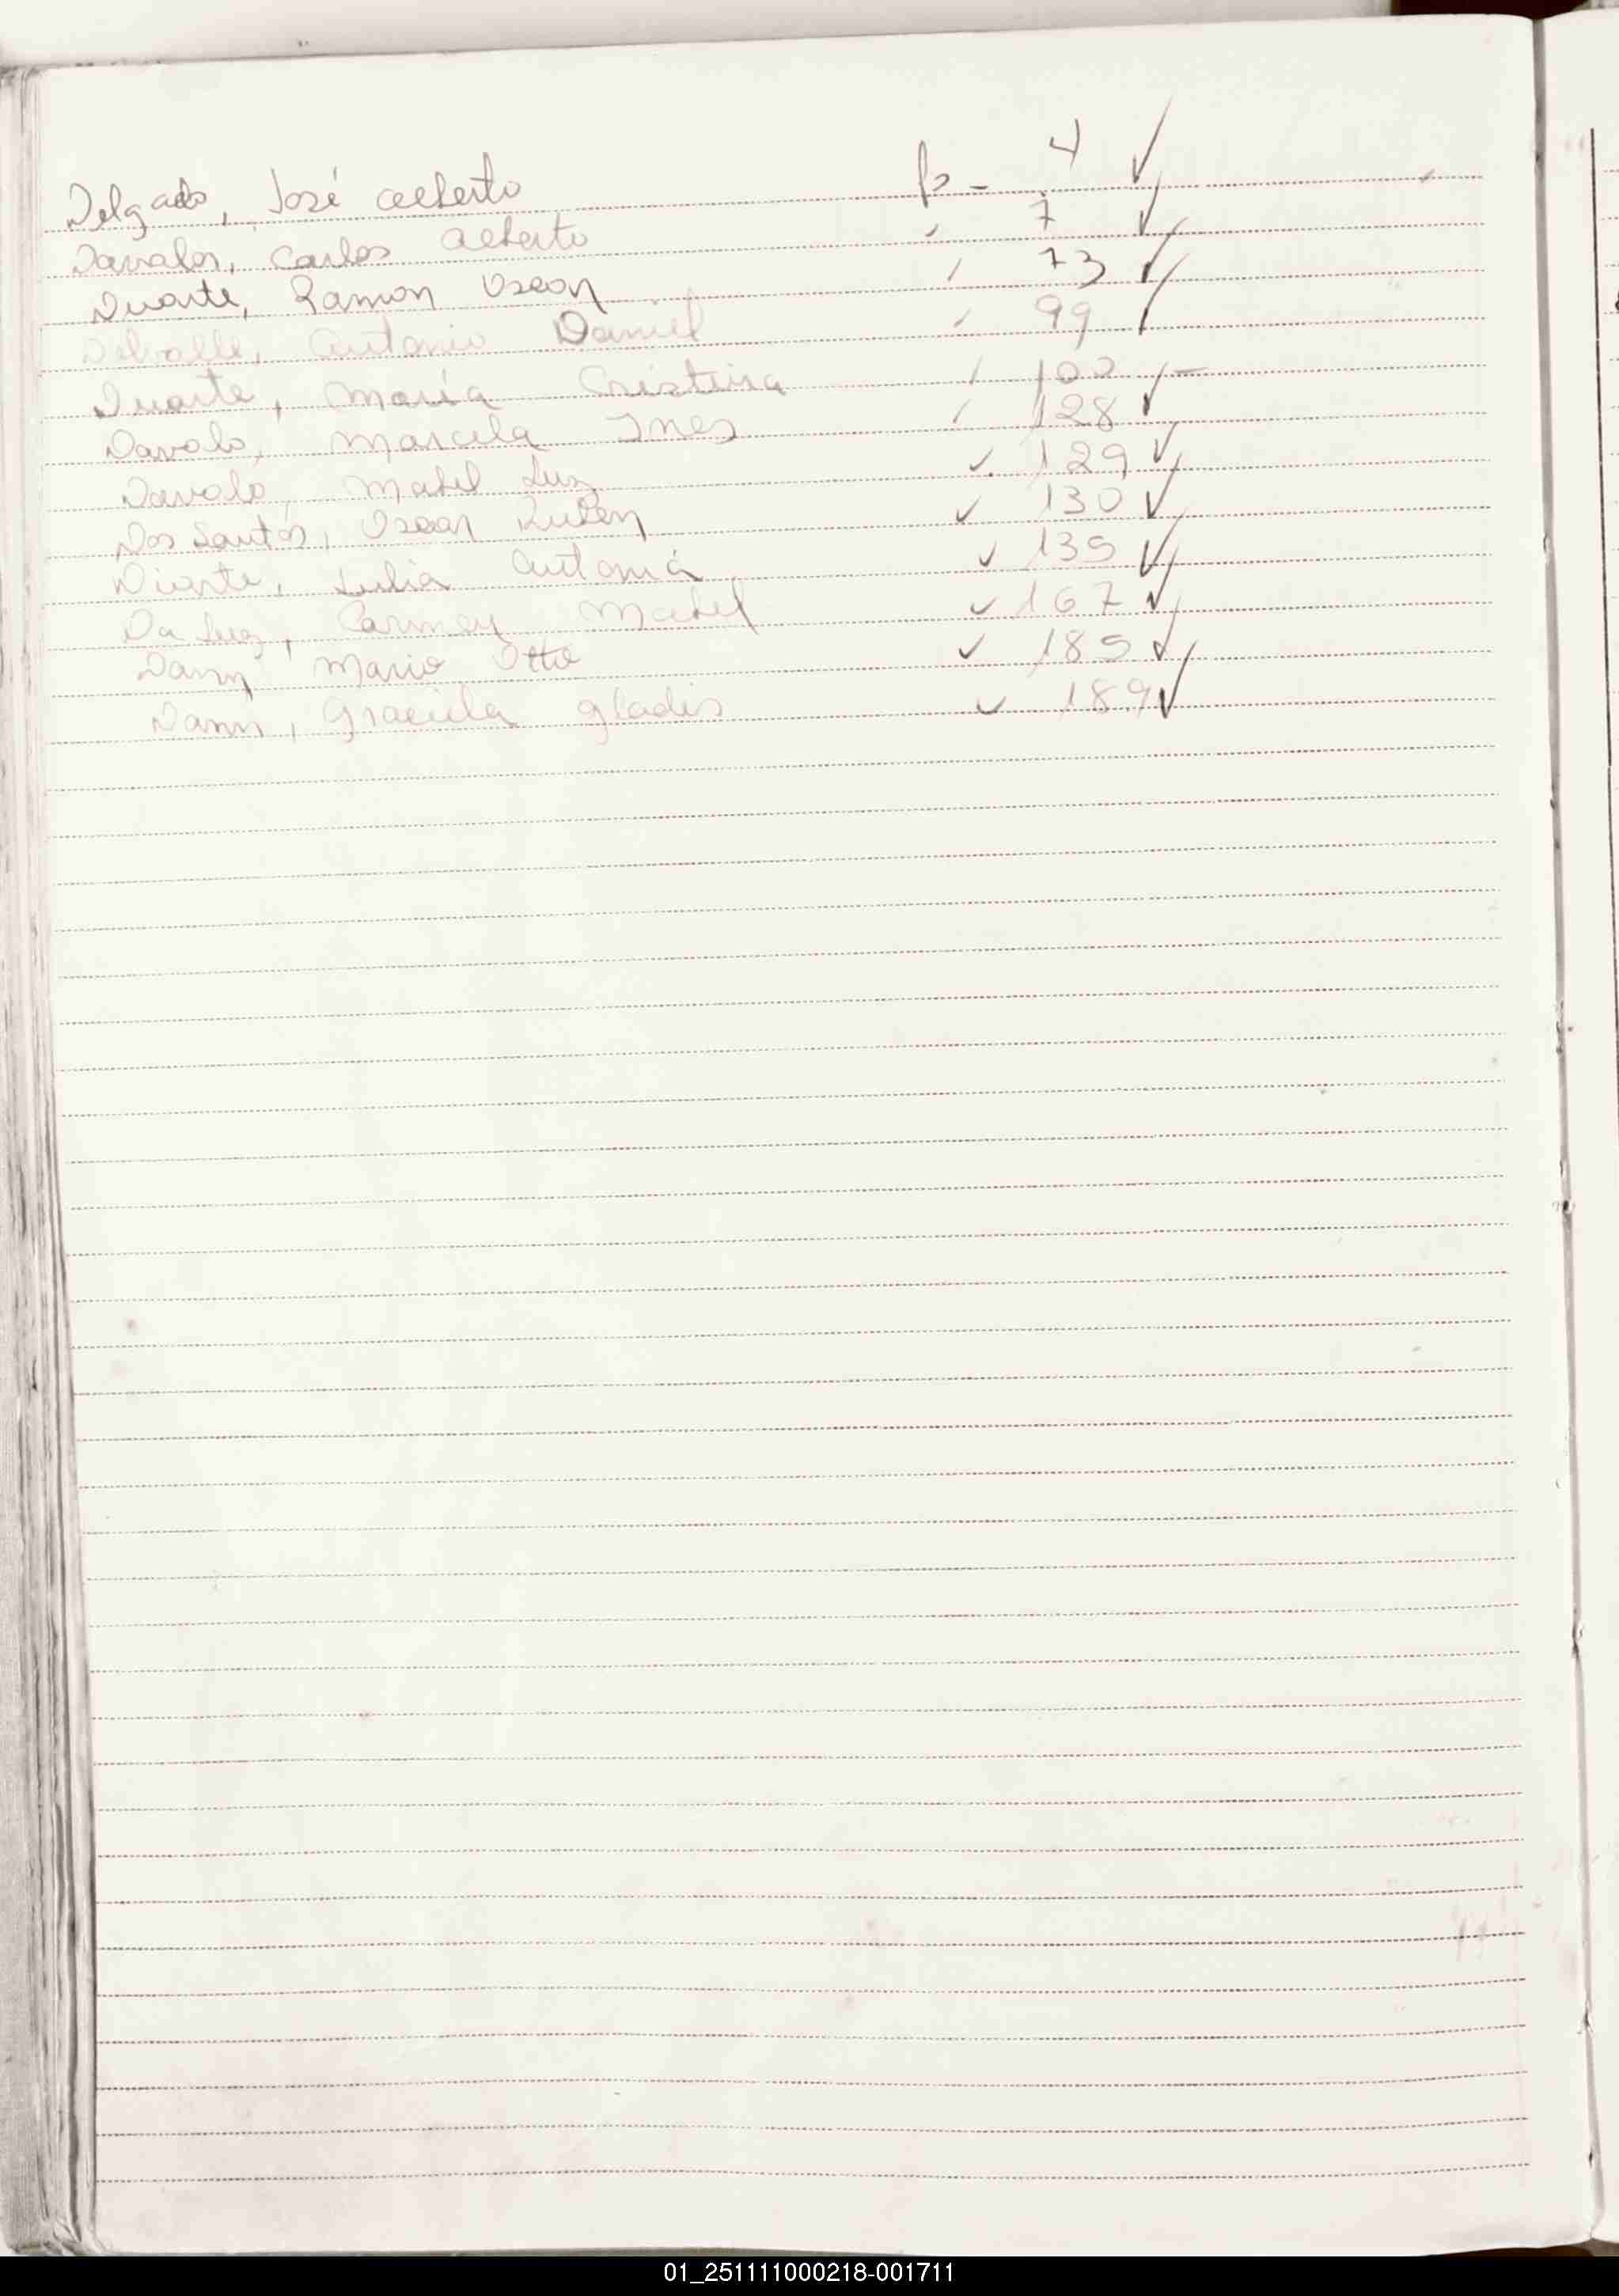 Delgado, José Alberto fs - 4 ✓
Davalos, Carlos Alberto " 7 ✓
Duarte, Ramon Oscar " 73 ✓
Delvalle, Antonio Daniel " 99 ✓
Duarte, María Cristina " 100 ✓
Davalo, Marcela Ines " 128 ✓
Davalo, Mabel Luz ✓ 129 ✓
Dos Santos, Oscar Ruben ✓ 130 ✓
Duarte, Julia Antonia ✓ 135 ✓
Da Luz, Carmen Mabel ✓ 167 ✓
Mario Otto ✓ 185 ✓
Graciela Gladis ✓ 189 ✓
01_251111000218-001711